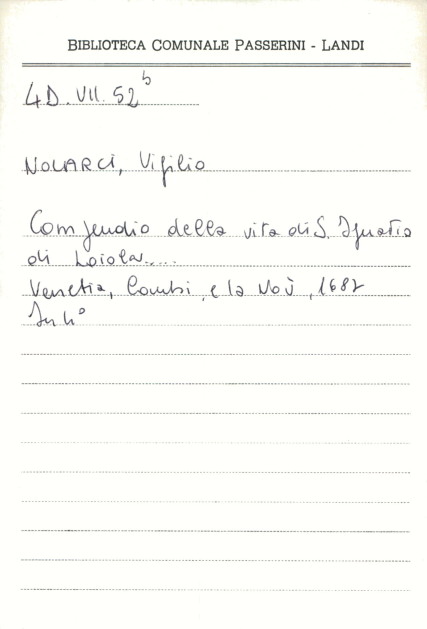 BIBLIOTECA COMUNALE PASSERINI - LANDI
4D. VII. 52 b
NOLARCI, Vigilio
Compendio della vita di S. Ignatio
di Loiola....
Venetia, Combi, e la Noù, 1687
In 4°